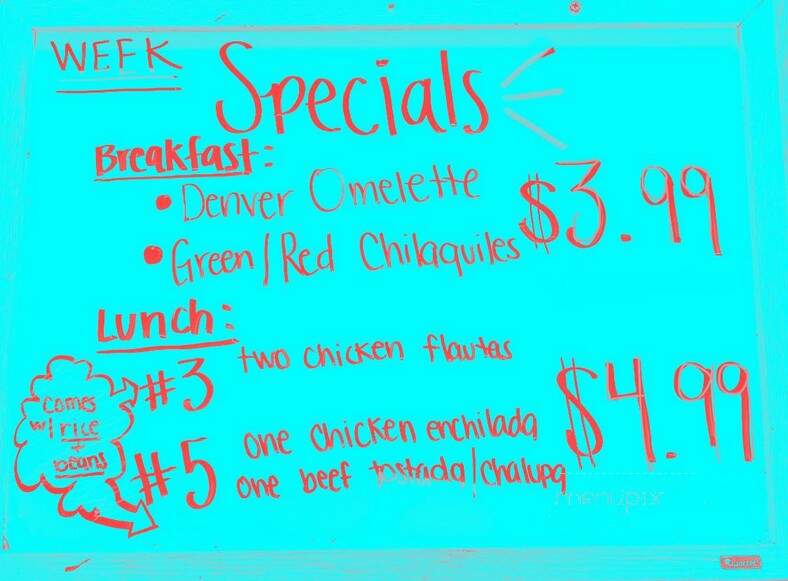 WEEK
Specials
Breakfast:
• Denver Omelette
• Green/Red Chilaquiles
$3.99
Lunch:
#3 two chicken flautas
#5 one chicken enchilada
one beef tostada/chalupa
$4.99
Comes
w/ rice
+
beans
menupix